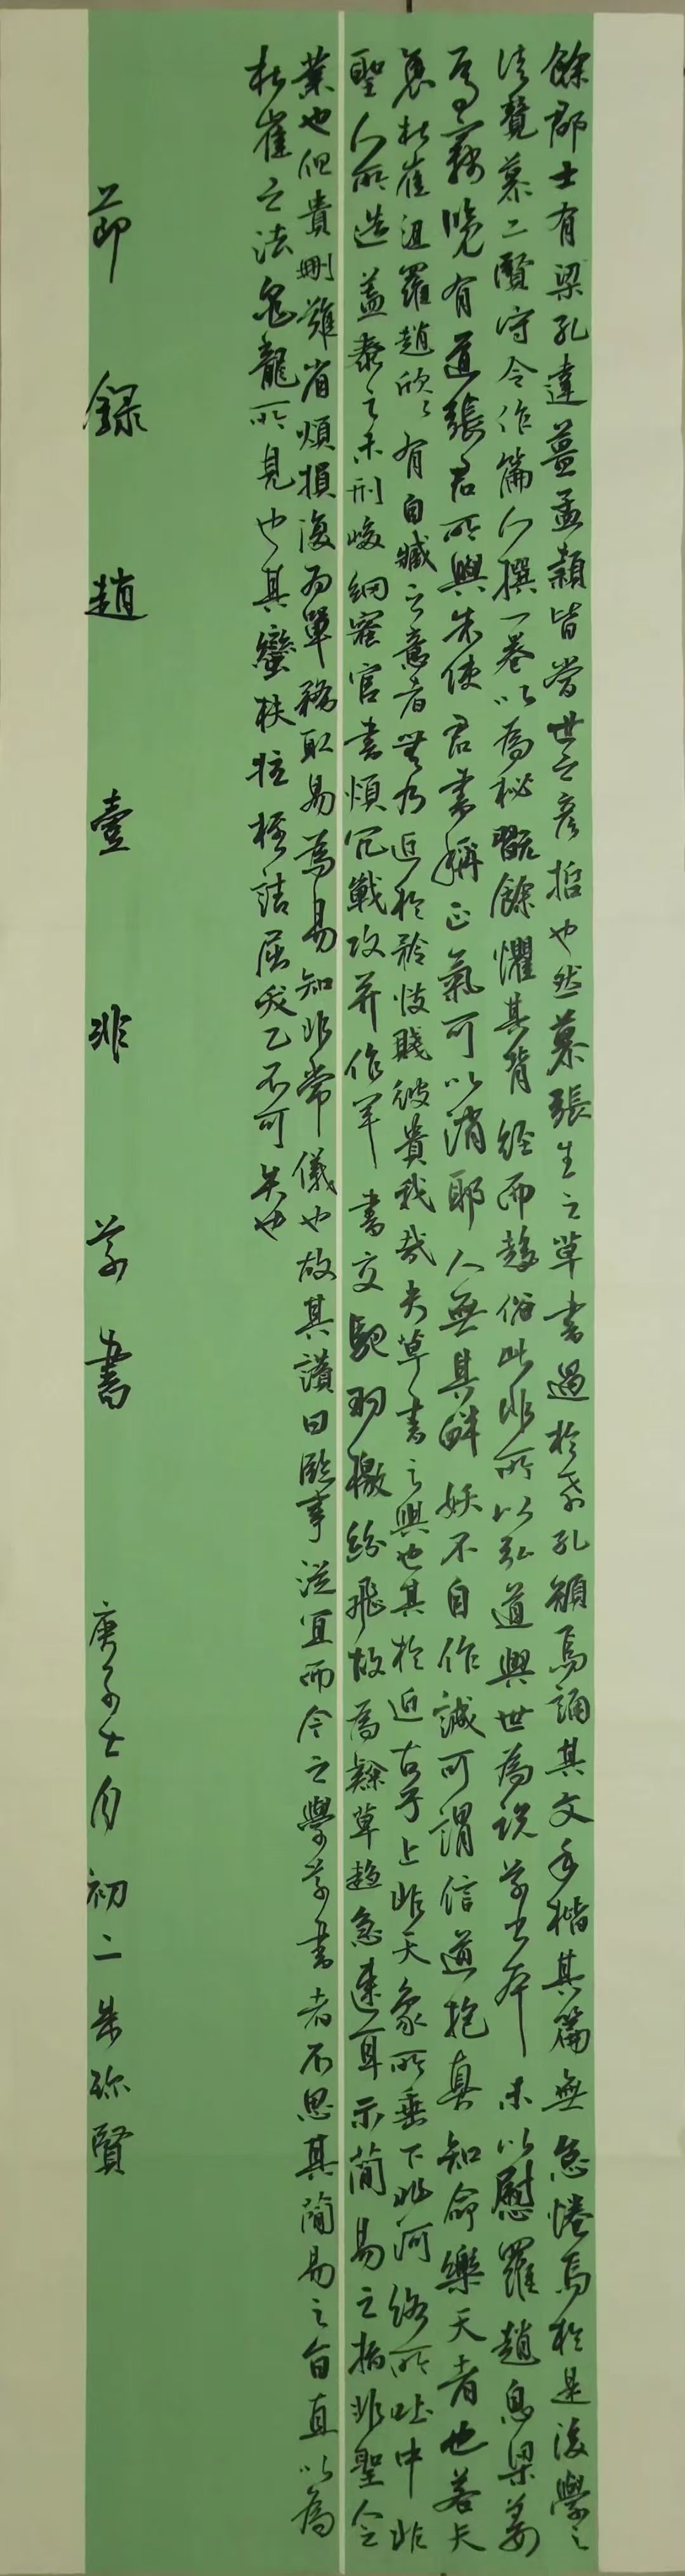 餘郡士有梁孔達薑孟穎皆當世之彥哲也然慕張生之草書過於希孔顏焉誦其文手楷其篇無怠惓焉於是後學之
徒競慕二賢守令作篇人撰一卷以為秘翫餘懼其背經而趨俗此非所以弘道興世為說草書本末以慰羅趙息梁姜
焉竊覽有道張君所與朱使君書稱正氣可以消邪人無其釁妖不自作誠可謂信道抱真知命樂天者也若夫
褒杜崔沮羅趙欣欣有自臧之意者無乃近於矜忮賤彼貴我哉夫草書之興也其於近古乎上非天象所垂下非河洛所吐中非
聖人所造蓋秦之末刑峻網密官書煩冗戰攻並作軍書交馳羽檄紛飛故為隸草趨急速耳示簡易之指非聖人之
業也但貴刪難省煩損復為單務取易為易知非常儀也故其讚曰臨事從宜而今之學草書者不思其簡易之旨直以為
杜崔之法龜龍所見也其蠻扶拄桎詰屈犮乙不可失也
節錄趙壹非草書 庚子七月初二朱珎賢